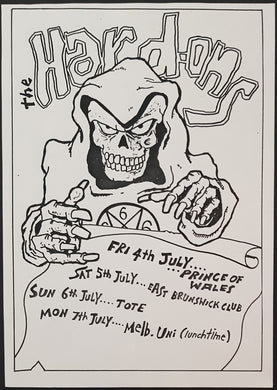 the Hard-ons
6
FRI 4th JULY....
...PRINCE OF
WALES
SAT 5th JULY...EAST BRUNSWICK CLUB
SUN 6th JULY.... TOTE
MON 7th JULY....Melb. Uni (lunchtime)